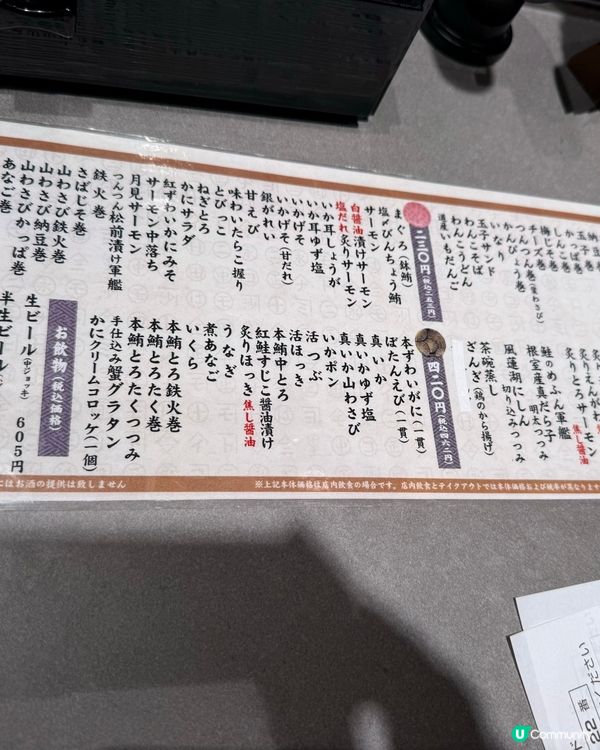 納豆巻
玉子
かっぱ巻
しんこ巻
梅じそ巻
チーズ巻
かんぴょう巻
いなり
玉子サンド
わんこそば
わんこうどん
道産いもだんご
二三〇円(税込二五三円)
まぐろ(鉢鮪)
塩〆びんちょう鮪
サーモン
白醤油漬けサーモン
塩だれ炙りサーモン
いか耳しょうが
いか耳ゆず塩
いかげそ
いかげそ(甘だれ)
銀がれい
甘えび
味わいたらこ握り
とびっこ
ねぎとろ
かにサラダ
紅ずわいかにみそ
サーモン中落ち
月見サーモン
つんつん松前漬け軍艦
鉄火巻
さばじそ巻
山わさび鉄火巻
山わさび納豆巻
山わさびかっぱ巻
あなご巻
焦し醤油
炙りとろサーモン
鮭のめふん軍艦
根室産真だら子
明太つつみ
風蓮湖にしん
切り込みつつみ
茶碗蒸し
ざんぎ(鶏のから揚げ)
四二〇円(税込四六二円)
本ずわいがに(一貫)
ぼたんえび(一貫)
真いか
真いかゆず塩
真いか山わさび
いかポン
活つぶ
活ほっき
本鮪中とろ
紅鮭すじこ醤油漬け
炙りほっき焦し醤油
うなぎ
煮あなご
いくら
本鮪とろ鉄火巻
本鮪とろたく巻
本鮪とろたくつつみ
手仕込み蟹グラタン
かにクリームコロッケ(一個)
お飲物(税込価格)
生ビール(中ジョッキ) 605円
半生ビール
にはお酒の提供は致しません
※上記本体価格は店内飲食の場合です。店内飲食とテイクアウトでは本体価格および税率が異なります
番
22
ください
U Community